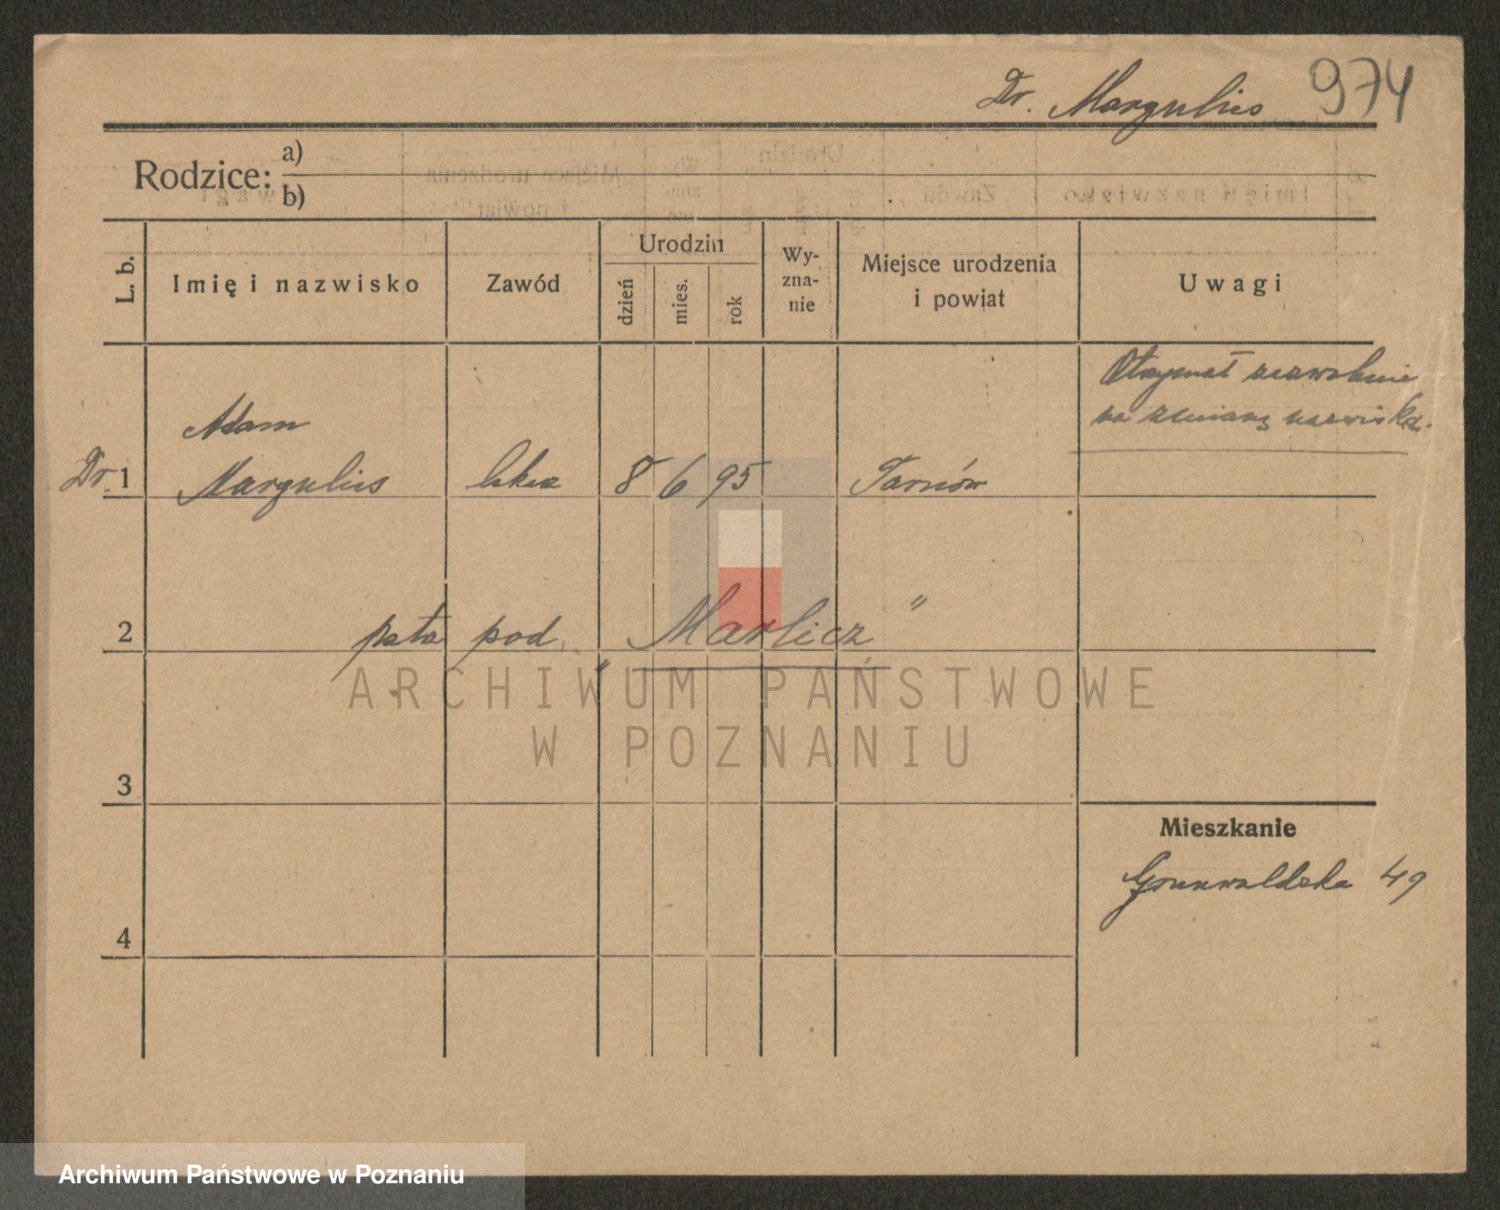 Dr. Margulies 974
Rodzice: a)
b)
L. b.
Imię i nazwisko
Zawód
Urodzin
dzień
mies.
rok
Wy-
zna-
nie
Miejsce urodzenia
i powiat
Uwagi
Otrzymał zezwolenie
na zmianę nazwiska.
Adam
Dr. 1 Margulies lekarz 8 6 95 Tarnów
2 pod „Marlicz”
3
4
Mieszkanie
Grunwaldzka 49
ARCHIWUM PAŃSTWOWE
W POZNANIU
Archiwum Państwowe w Poznaniu